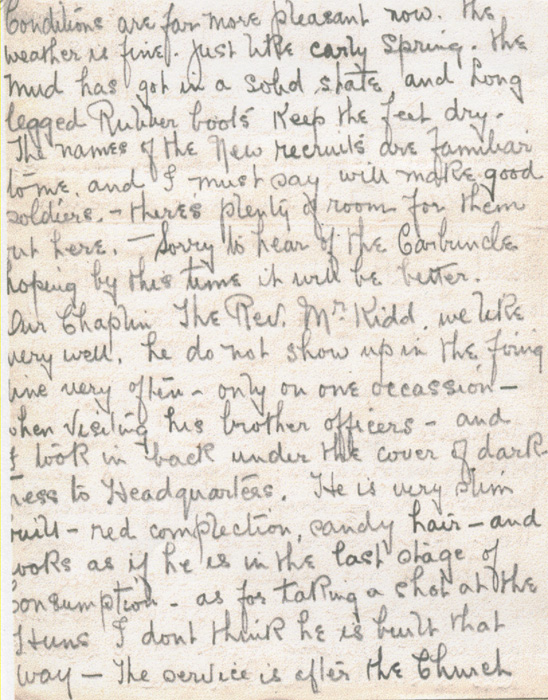 Conditions are far more pleasant now. The
weather is fine. Just like early Spring. The
mud has got in a solid state, and Long
legged Rubber boots keep the feet dry.
The names of the New recruits are familiar
to me, and I must say will make good
soldiers. - there's plenty of room for them
ut here. - Sorry to hear of the Carbuncle
hoping by this time it will be better.
Our Chaplin The Rev. Mr Kidd, we like
very well. he do not show up in the firing
line very often - only on one occassion -
when visiting his brother officers - and
I took in back under the cover of dark-
ness to Headquarters. He is very slim
built - red complection, sandy hair - and
looks as if he is in the last stage of
Consumption - as for taking a shot at the
Huns I dont think he is built that
way - The service is after the Church